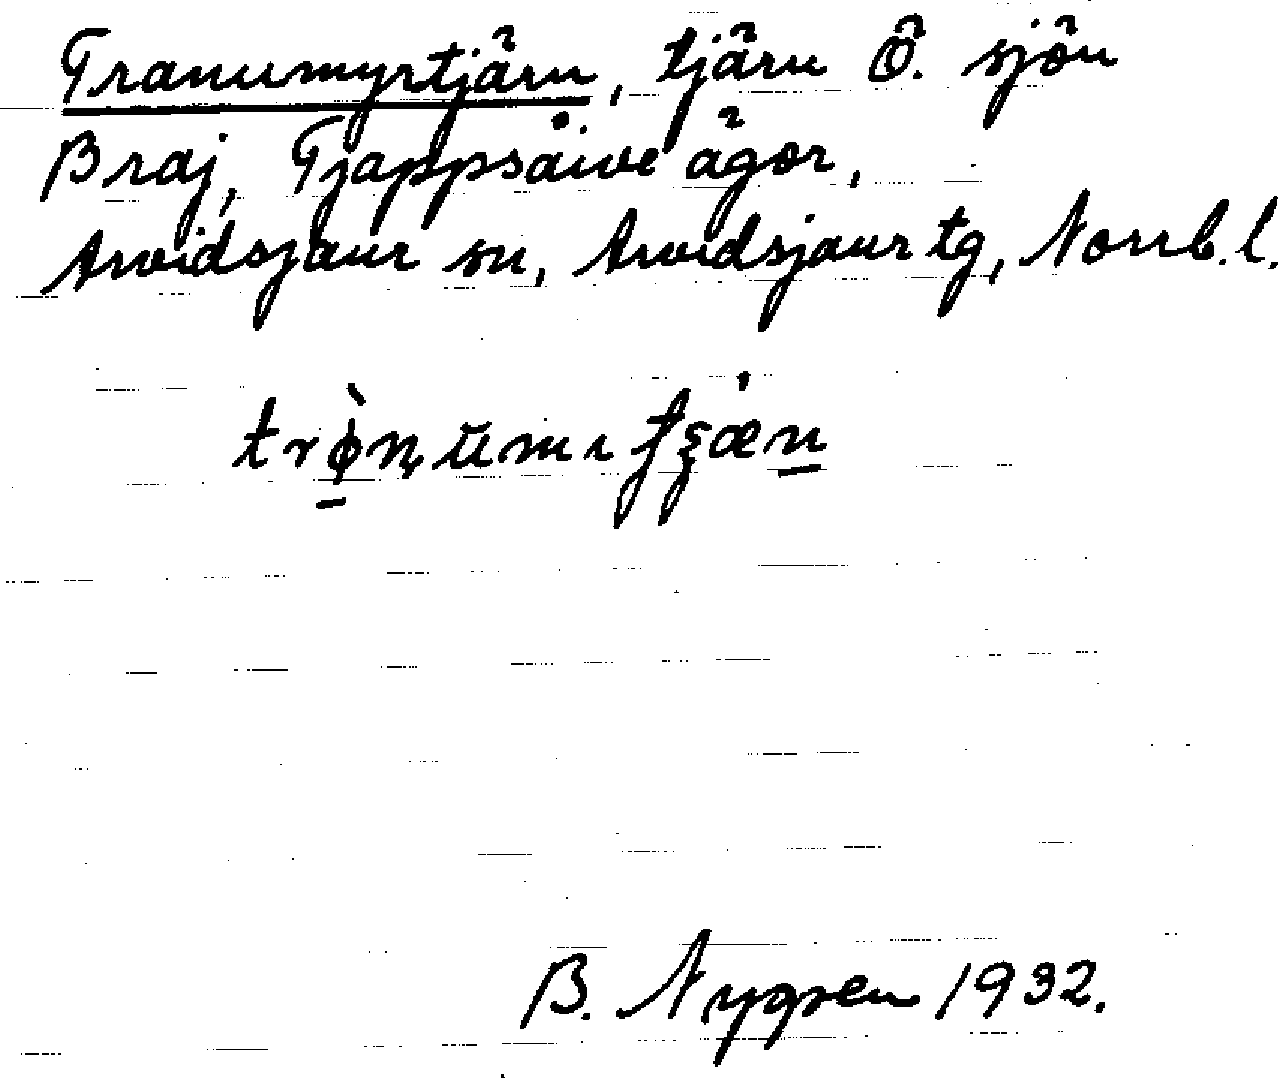 Tranumyrtjärn, tjärn Ö. sjön
Braj, Tjappsåive ägor,
Arvidsjaur sn, Arvidsjaur tg, Norrb. l.
B. Nygren 1932.